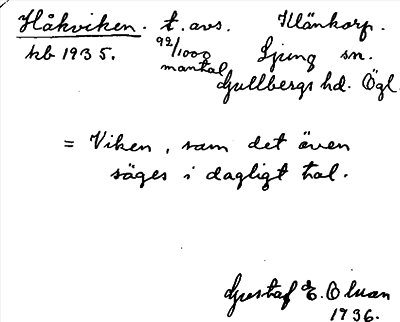 Håkviken. t. avs. Klänkorp.
kb 1935. 92/1000 mantal Ljung sn.
Gullbergs hd. Ögl.
= Viken, som det även
säges i dagligt tal.
Gustaf E. Olsson
1936.